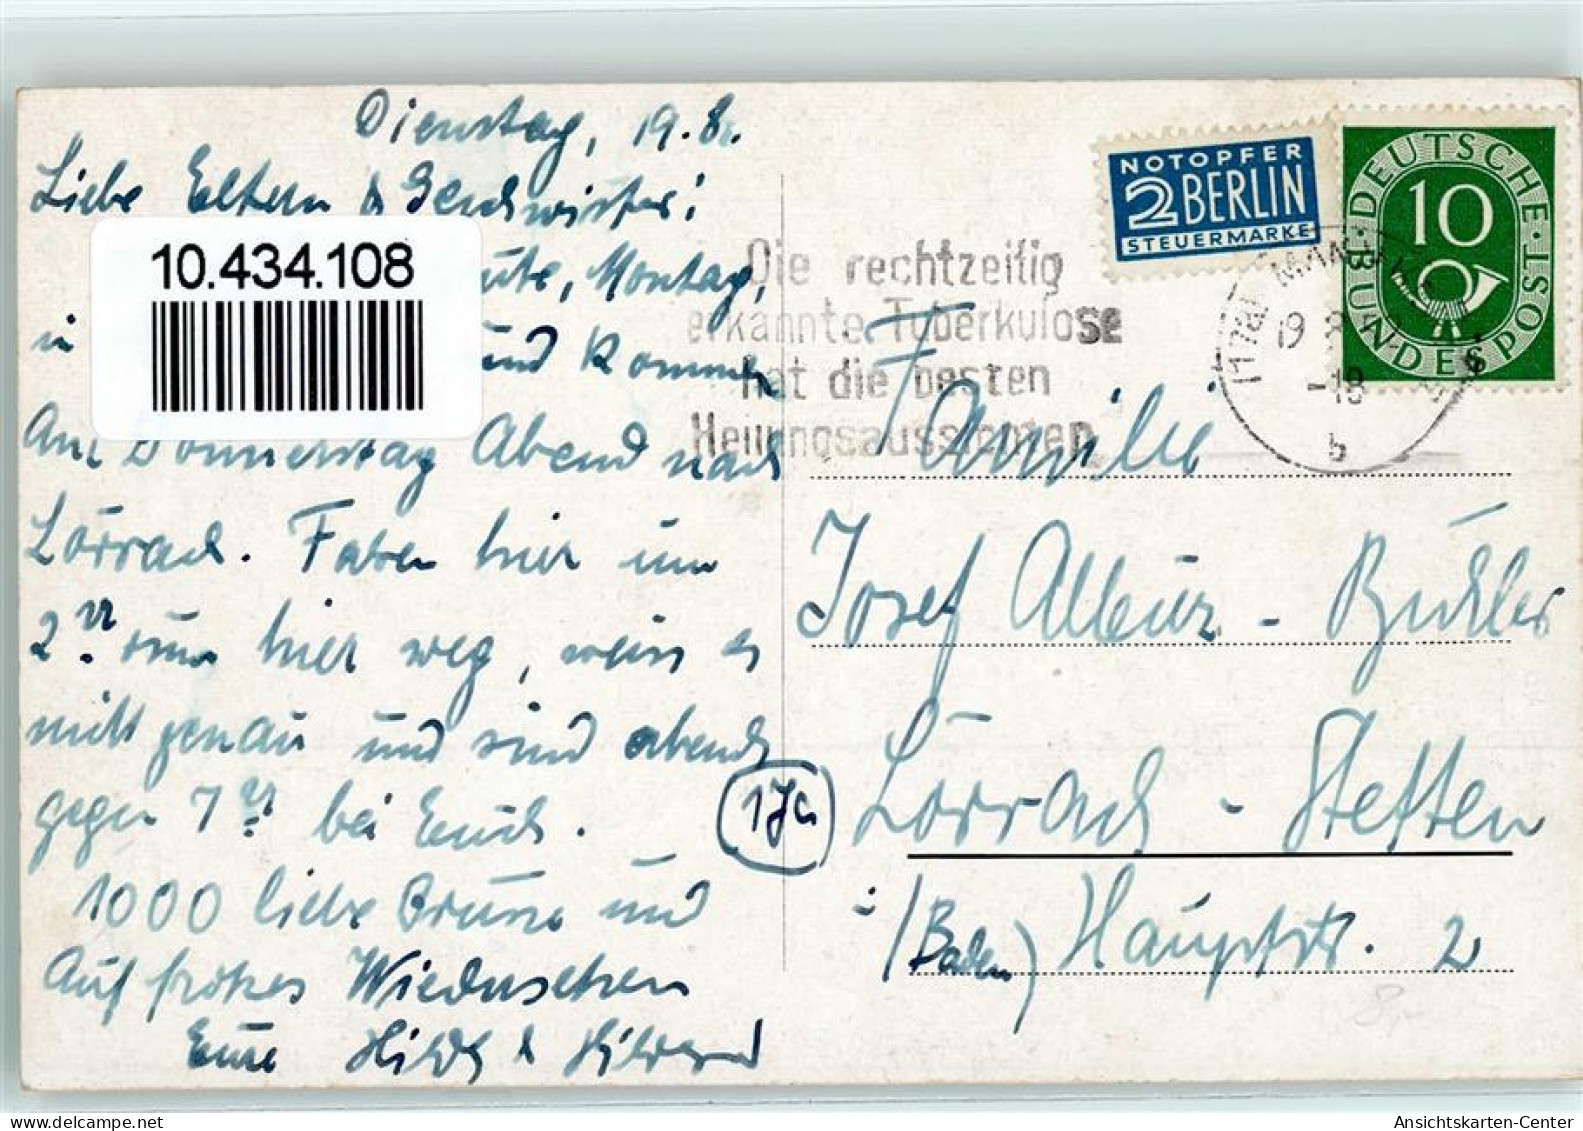 Dienstag, 19.8.
Liebe Eltern & Geschwister!
10.434.108
heute, Montag,
in
und kommen
am Donnerstag Abend nach
Lörrach. Fahren hier um
2 Uhr hier weg, weiss es
nicht genau und sind abends
gegen 7 Uhr bei Euch.
1000 liebe Grüsse und
Auf frohes Wiedersehen
Eure Hilde &
NOTOPFER
2 BERLIN
STEUERMARKE
DEUTSCHE BUNDESPOST
10
Die rechtzeitig
erkannte Tuberkulose
hat die besten
Heilungsaussichten
(17a) MANNHEIM
19.8.
-18
b
Familie
Josef - Bühler
Lörrach - Stetten
i/(Baden) Hauptstr. 2
8,-
Ansichtskarten-Center